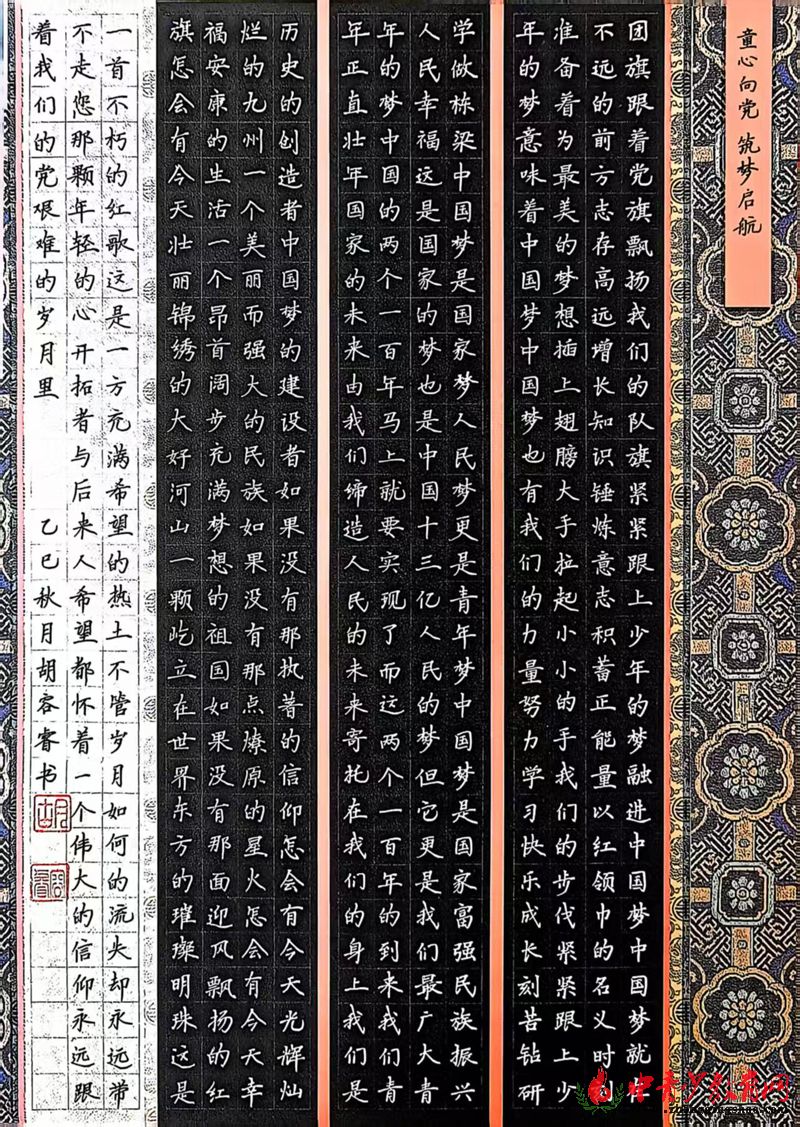 童心向党 筑梦启航
团旗跟着党旗飘扬我们的队旗紧紧跟上少年的梦融进中国梦中国梦就在
不远的前方志存高远增长知识锤炼意志积蓄正能量以红领巾的名义时刻
准备着为最美的梦想插上翅膀大手拉起小小的手我们的步伐紧紧跟上少
年的梦意味着中国梦中国梦也有我们的力量努力学习快乐成长刻苦钻研
学做栋梁中国梦是国家梦人民梦更是青年梦中国梦是国家富强民族振兴
人民幸福这是国家的梦也是中国十三亿人民的梦但它更是我们最广大青
年的梦中国的两个一百年马上就要实现了而这两个一百年的到来我们青
年正直壮年国家的未来由我们缔造人民的未来寄托在我们的身上我们是
历史的创造者中国梦的建设者如果没有那执著的信仰怎会有今天光辉灿
烂的九州一个美丽而强大的民族如果没有那点燎原的星火怎会有今天幸
福安康的生活一个昂首阔步充满梦想的祖国如果没有那面迎风飘扬的红
旗怎会有今天壮丽锦绣的大好河山一颗屹立在世界东方的璀璨明珠这是
一首不朽的红歌这是一方充满希望的热土不管岁月如何的流失却永远带
不走您那颗年轻的心开拓者与后来人希望都怀着一个伟大的信仰永远跟
着我们的党艰难的岁月里 乙巳秋月胡容睿书
中青少教育网